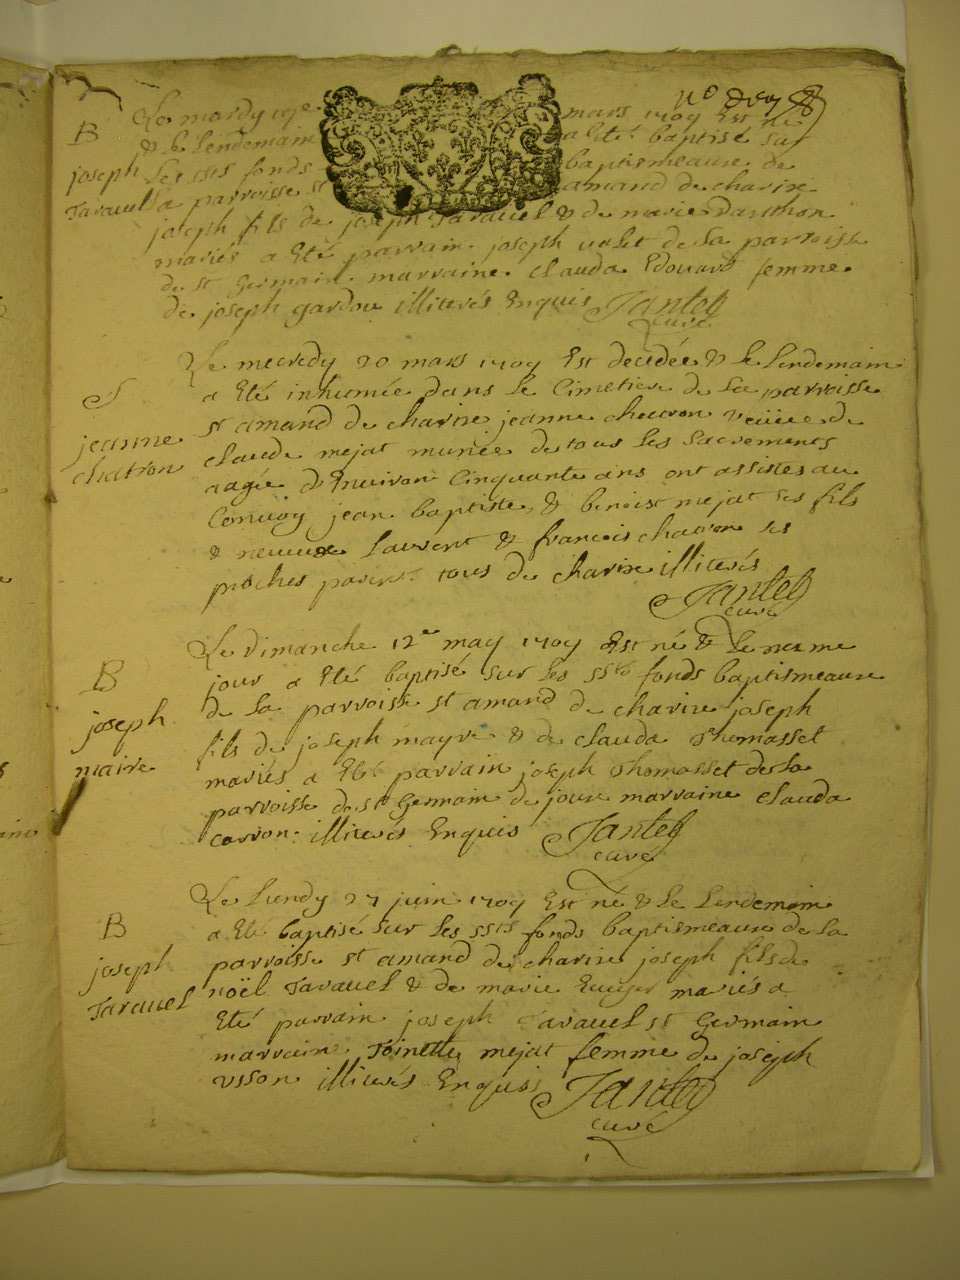 Le mardy 19e mars 1709 Est né
B
& le Lendemain a Eté baptisé sur
joseph
les sts fonds baptismeaux de
Taravel
la parroisse st amand de charixe
joseph fils de joseph Taravel & de marie Danthon
mariés a Eté parrain joseph valet de la parroisse
de st Germain marraine Clauda Edouard femme
de joseph gardon illiterés Enquis Jantet
curé
Le mecredy 20 mars 1709 Est decedée & le Lendemain
a Eté inhumée dans le Cimetiere de la parroisse
S
st amand de charixe jeanne chatron veüve de
jeanne
claude mejat munie de tous les sacrements
chatron
aagée d'Environ Cinquante ans ont assistes au
Convoy jean baptiste & benoist mejat ses fils
& neveux Laurent & francois chatron ses
proches parens tous de charixe illiterés
Jantet
curé
Le Dimanche 12e may 1709 Est né & le mesme
B
jour a Eté baptisé sur les sts fonds baptismeaux
joseph
de la parroisse st amand de charixe joseph
fils de joseph mayre & de clauda Thomasset
maire
mariés a Eté parrain joseph Thomasset de la
parroisse de st Germain de joux marraine Clauda
carron illiterés Enquis Jantet
curé
Le Lundy 27 juin 1709 Est né & le Lendemain
B
a Eté baptisé sur les ssts fonds baptismeaux de la
joseph
parroisse st amand de charixe joseph fils de
Taravel
noël Taravel & de marie mariés a
Eté parrain joseph Taravel st Germain
marraine Toinette mejat femme de joseph
usson illiterés Enquis Jantet
curé